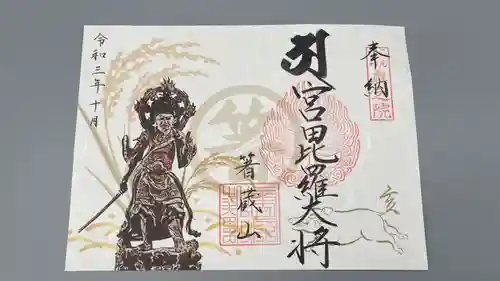 奉納
宮毘羅大将
箸蔵山
亥
令和三年十月